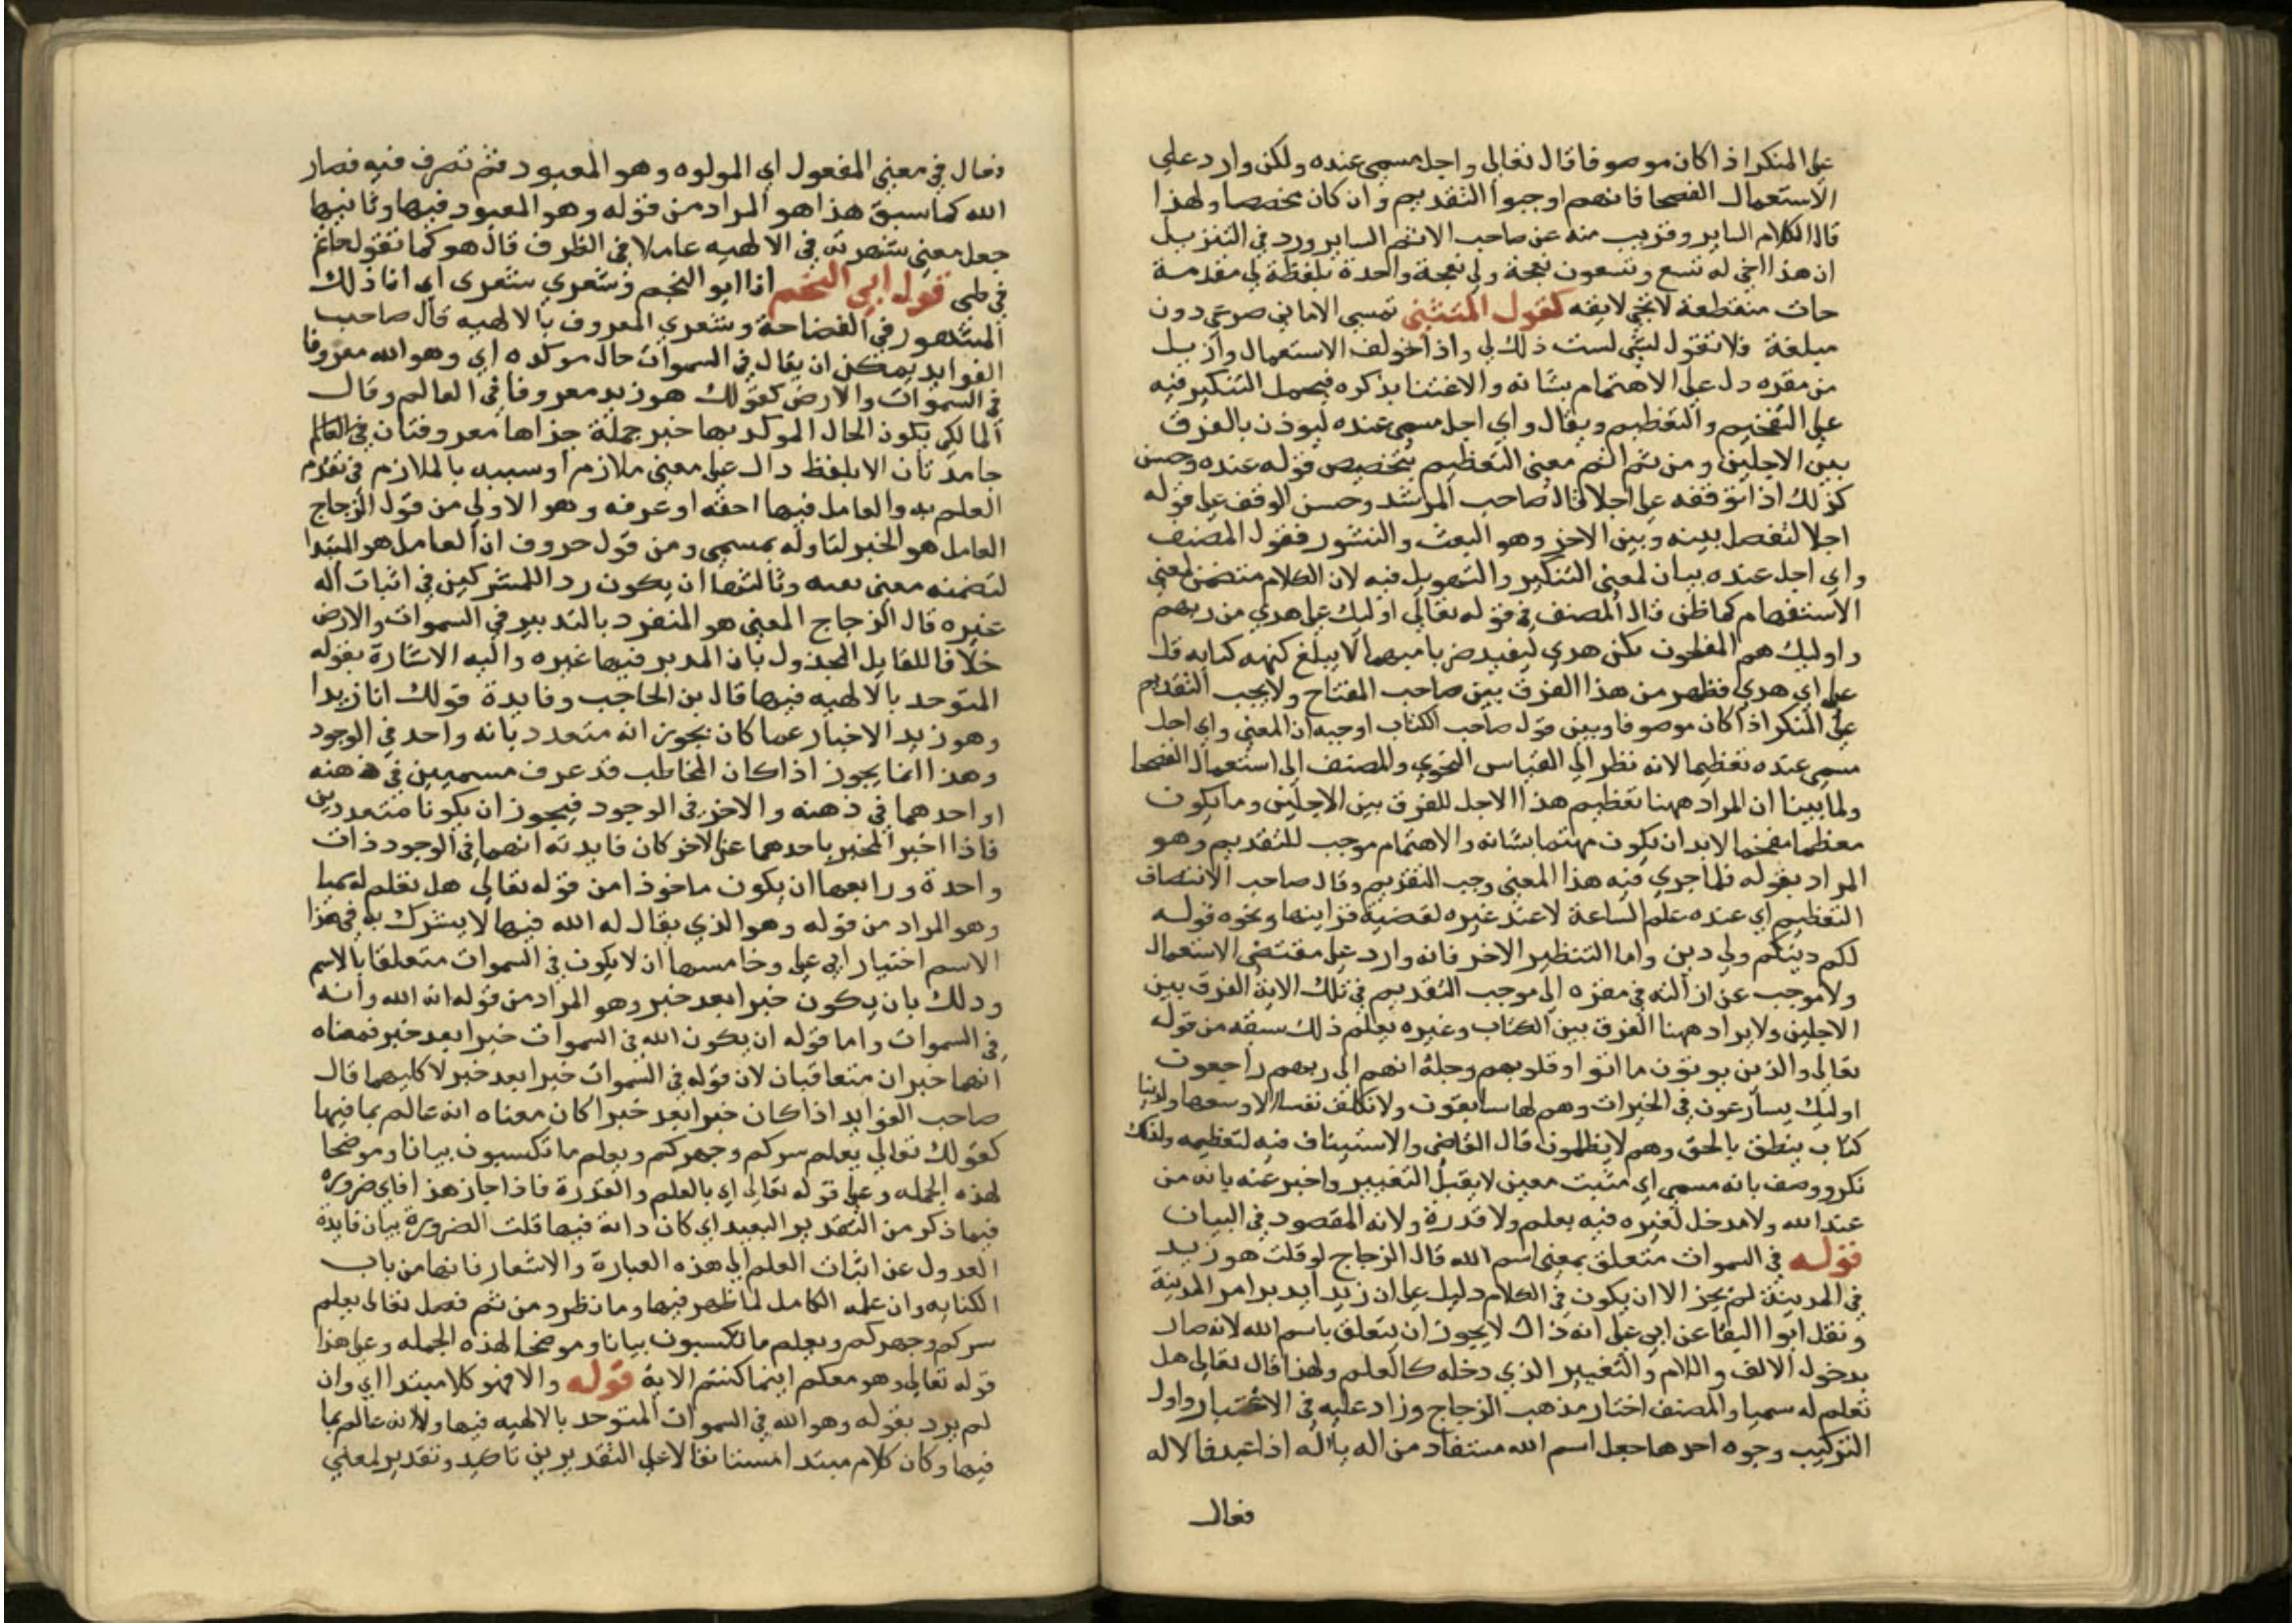 على المنكر اذا كان موصوفا قال تعالى واجل مسمى عنده ولكن وارد على
الاستعمال الفصحا فانهم اوجبوا التقديم وان كان مخصصا ولهذا
قال الكلام الساير وقريب منه عن صاحب الانثم الساير ورد في التنزيل
ان هذا اخي له تسع وتسعون نعجة ولي نعجة واحدة بلفظة لي مقدمة
جات منقطعة لا تجي لايقه كقول المتنبي تمسي الاماني صرعى دون
مبلغة فلا تقول لشي لست ذلك لي واذا خولف الاستعمال وازيل
من مقره دل على الاهتمام بشانه والاعتنا بذكره فيحمل التنكير فيه
على التفخيم والتعظيم ويقال واي اجل مسمى عنده ليوذن بالفرق
بين الاجلين ومن ثم النم معنى التعظيم بتخصيص قوله عنده وحسن
كذلك اذا توقفه على اجلا قال صاحب المرشد وحسن الوقف على قوله
اجلا لتفصل بينه وبين الاخر وهو البعث والنشور فقول المصنف
واي اجل عنده بيان لمعنى التنكير والتهويل فيه لان الكلام متضمن لمعنى
الاستفهام كما ظن قال المصنف في قوله تعالى اوليك على هدي من ربهم
واوليك هم المفلحون نكن هدي ليفيد ضربا مبهما لا يبلغ كنهه كنايه قل
على اي هدي فظهر من هذا الفرق بين صاحب المفتاح ولا يجب التقديم
على المنكر اذا كان موصوفا وبين قول صاحب الكتاب اوجبه ان المعنى واي اجل
مسمى عنده تعظيما لانه نظر الى القياس النحوي والمصنف الى استعمال الفصحا
ولما بينا ان المراد ههنا تعظيم هذا الاجل للفرق بين الاجلين وما يكون
معظما مفخما لا بد ان يكون مهتما بشانه والاهتمام موجب للتقديم وهو
المراد بقوله فلما جرى فيه هذا المعنى وجب التقديم وقال صاحب الانتصاف
التعظيم اي عنده علم الساعة لا عند غيره لقضية قراينها ونحوه قوله
لكم دينكم ولي دين واما التنظير الاخر فانه وارد على مقتضى الاستعمال
ولا موجب عن ازالته في مقره الى موجب التقديم في تلك الاية الفرق بين
الاجلين ولا يراد ههنا الفرق بين الكتاب وغيره يعلم ذلك سبقه من قوله
تعالى والذين يوتون ما اتوا وقلوبهم وجلة انهم الى ربهم راجعون
اوليك يسارعون في الخيرات وهم لها سابقون ولا نكلف نفسا الا وسعها ولدينا
كتاب ينطق بالحق وهم لا يظلمون قال القاضي والاستيناف فيه لتعظيمه ولذلك
نكر ووصف بانه مسمى اي مثبت معين لا يقبل التغيير واخبر عنه بانه من
عند الله ولا مدخل لغيره فيه بعلم ولا قدرة ولانه المقصود في البيان
قوله في السموات متعلق بمعنى اسم الله قال الزجاج لو قلت هو زيد
في المدينة لم يجز الا ان يكون في الكلام دليل على ان زيدا يدبر امر المدينة
ونقل ابوا البقا عن ابي على انه ذاك لا يجوز ان يتعلق باسم الله لانه صار
بدخول الالف واللام والتغيير الذي دخله كالعلم ولهذا قال تعالى هل
تعلم له سميا والمصنف اختار مذهب الزجاج وزاد عليه في الاعتبار واول
التركيب وجوه احدها جعل اسم الله مستفاد من اله بالاله اذا عبد فالاله
فعال
فعال في معنى المفعول اي المولوه وهو المعبود فثم تصرف فيه فصار
الله كما سبق هذا هو المراد من قوله وهو المعبود فيها وثانيها
جعل معنى شهرته في الالهيه عاملا في الظرف قال هو كما تقول حاتم
في طى قول ابي النجم انا ابو النجم وشعري شعرى اي انا ذلك
المشهور في الفصاحة وشعري المعروف بالالهيه قال صاحب
الفوايد يمكن ان يقال في السموات حال موكده اي وهو الله معروفا
في السموات والارض كقولك هو زيد معروفا في العالم وقال
المالكي يكون الحال الموكد بها خبر جملة جزاها معروفتان في العالم
جامدتان الا بلفظ دال على معنى ملازم او سببه بالملازم في تقدم
العلم به والعامل فيها احقه او عرفه وهو الاولى من قول الزجاج
العامل هو الخبر لتاوله بمسمى ومن قول حروف ان العامل هو المبتدا
لتضمنه معنى تعبه وثالثها ان يكون رد اللمشركين في اثبات اله
غيره قال الزجاج المعنى هو المنفرد بالتدبير في السموات والارض
خلافا للقايل المخذول بان المدبر فيها غيره واليه الاشارة بقوله
المتوحد بالالهيه فيها قال بن الحاجب وفايدة قولك انا زيدا
وهو زيد الاخبار عما كان يجوز انه متعدد بانه واحد في الوجود
وهذا انما يجوز اذا كان المخاطب قد عرف مسميين في ذهنه
او احدهما في ذهنه والاخر في الوجود فيجوز ان يكونا متعددين
فاذا اخبر المخبر باحدهما عن الاخر كان فايدته انهما في الوجود ذات
واحدة ورابعها ان يكون ماخوذا من قوله تعالى هل تعلم له سميا
وهو المراد من قوله وهو الذي يقال له الله فيها لا يشرك به في هذا
الاسم اختيار ابي على وخامسها ان لا يكون في السموات متعلقا بالاسم
وذلك بان يكون خبرا بعد خبر وهو المراد من قوله انه الله وانه
في السموات واما قوله ان يكون الله في السموات خبرا بعد خبر فمعناه
انهما خبران متعاقبان لان قوله في السموات خبرا بعد خبر لا كليهما قال
صاحب الفوايد اذا كان خبرا بعد خبرا كان معناه انه عالم بما فيها
كقولك تعالى يعلم سركم وجهركم ويعلم ما تكسبون بيانا وموضحا
لهذه الجمله وعلى قوله تعالى اي بالعلم والقدرة فاذا جاز هذا فاي ضروره
فيما ذكر من التقدير البعيد اي كان ذاته فيها قلت الضرورة بيان فايدة
العدول عن اثبات العلم الى هذه العبارة والاشعار فانها من باب
الكنايه وان علمه الكامل لما ظهر فيها وما نظر ومن ثم فصل تعالى يعلم
سركم وجهركم ويعلم ما تكسبون بيانا وموضحا لهذه الجمله وعلى هذا
قوله تعالى وهو معكم اينما كنتم الاية قوله والا فهو كلا مبتدا اي وان
لم يرد بقوله وهو الله في السموات المتوحد بالالهيه فيها ولا انه عالم بما
فيها وكان كلام مبتدا مستانفا لا على التقديرين تاكيد وتقدير لمعنى